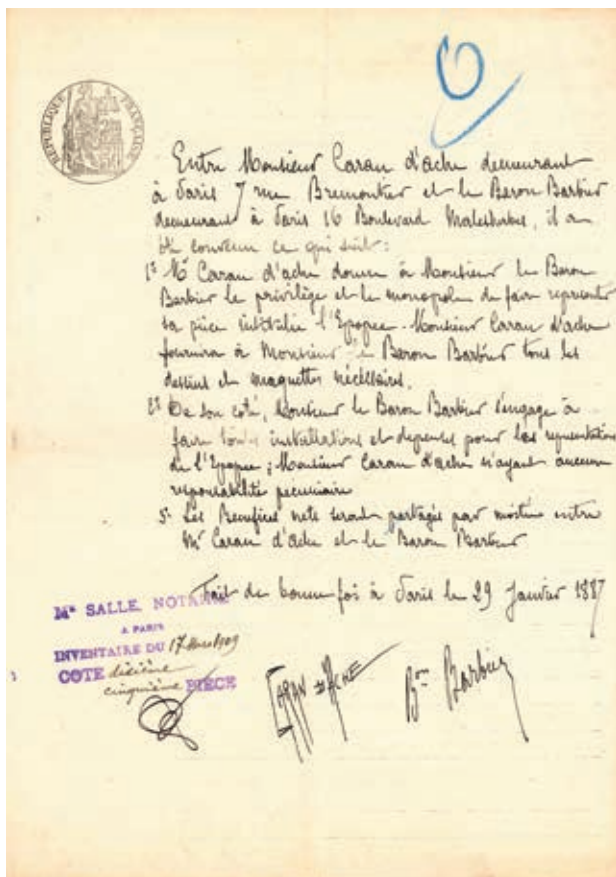 6
RÉPUBLIQUE FRANÇAISE
Entre Monsieur Caran d'ache demeurant
à Paris 7 rue Bremontier et le Baron Barbier
demeurant à Paris 16 Boulevard Malesherbes, il a
été convenu ce qui suit :
1º Mr Caran d'ache donne à Monsieur le Baron
Barbier le privilège et le monopole de faire représenter
sa pièce intitulée l'Epopee. Monsieur Caran d'ache
fournira à Monsieur le Baron Barbier tous les
dessins et maquettes nécessaires.
2º De son coté, Monsieur le Baron Barbier s'engage à
faire toutes installations et depenses pour les representations
de l'Epopee ; Monsieur Caran d'ache n'ayant aucune
responsabilité pecuniaire
3º Les Benefices nets seront partagés par moitié entre
Mr Caran d'Ache et le Baron Barbier
Fait de bonne foi à Paris le 29 Janvier 1887
Me SALLE, NOTAIRE
A PARIS
INVENTAIRE DU 17 Mars 1909
COTE dixième
cinquième PIÈCE
CARAN D'ACHE
Bon Barbier